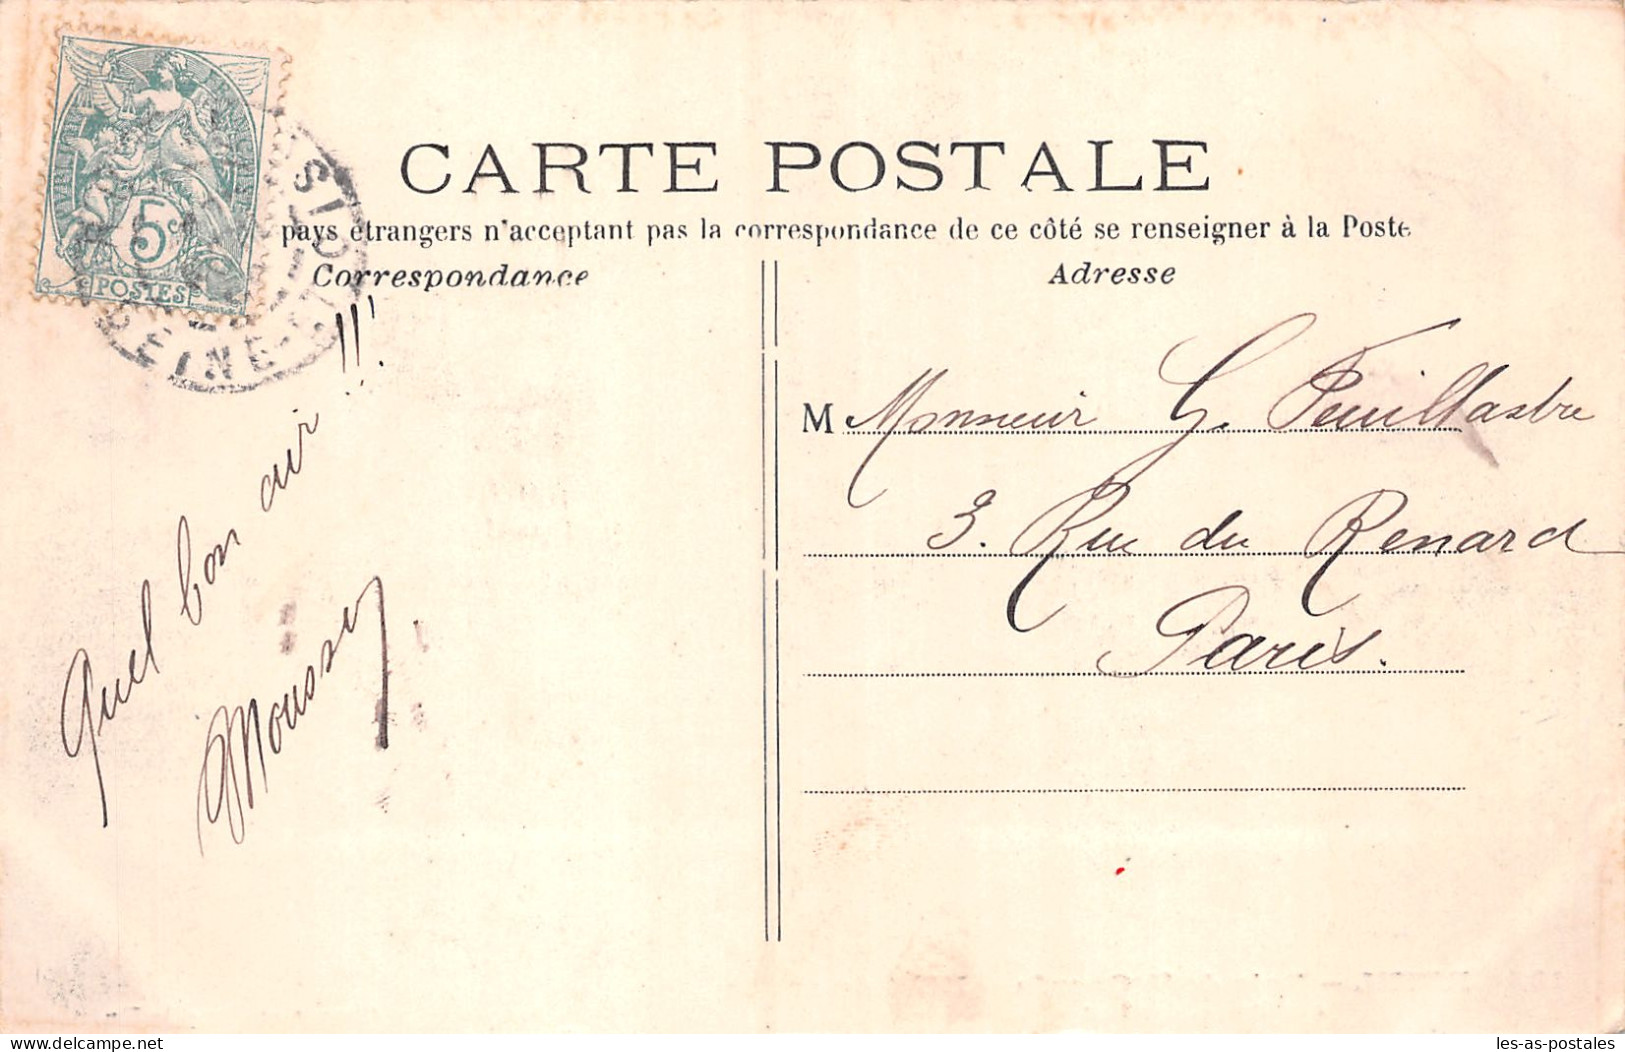 CARTE POSTALE
pays étrangers n'acceptant pas la correspondance de ce côté se renseigner à la Poste
Correspondance
Adresse
5c
POSTES
SEINE-ET-OISE
Quel bon air !!!
Moussy
M Monsieur G. Feuillastre
3. Rue du Renard
Paris.
les-as-postales